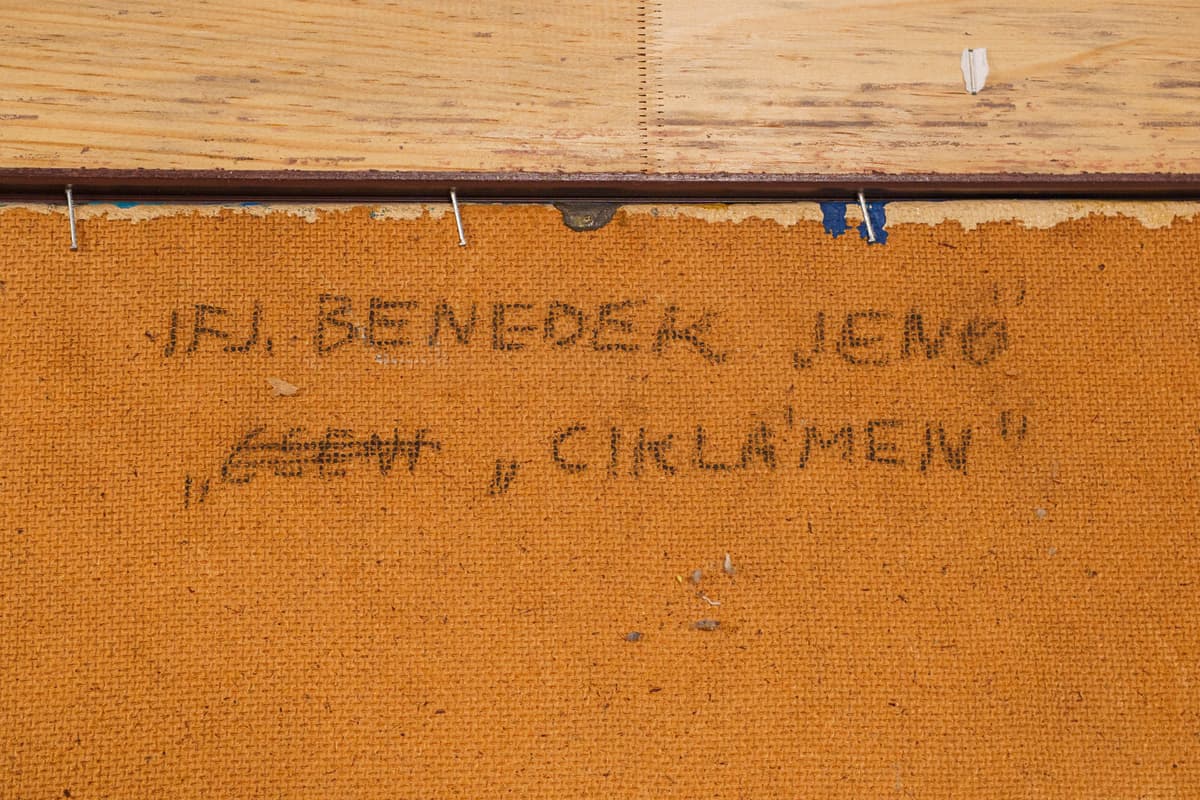 IFJ. BENEDEK JENŐ
„ „CIKLÁMEN"